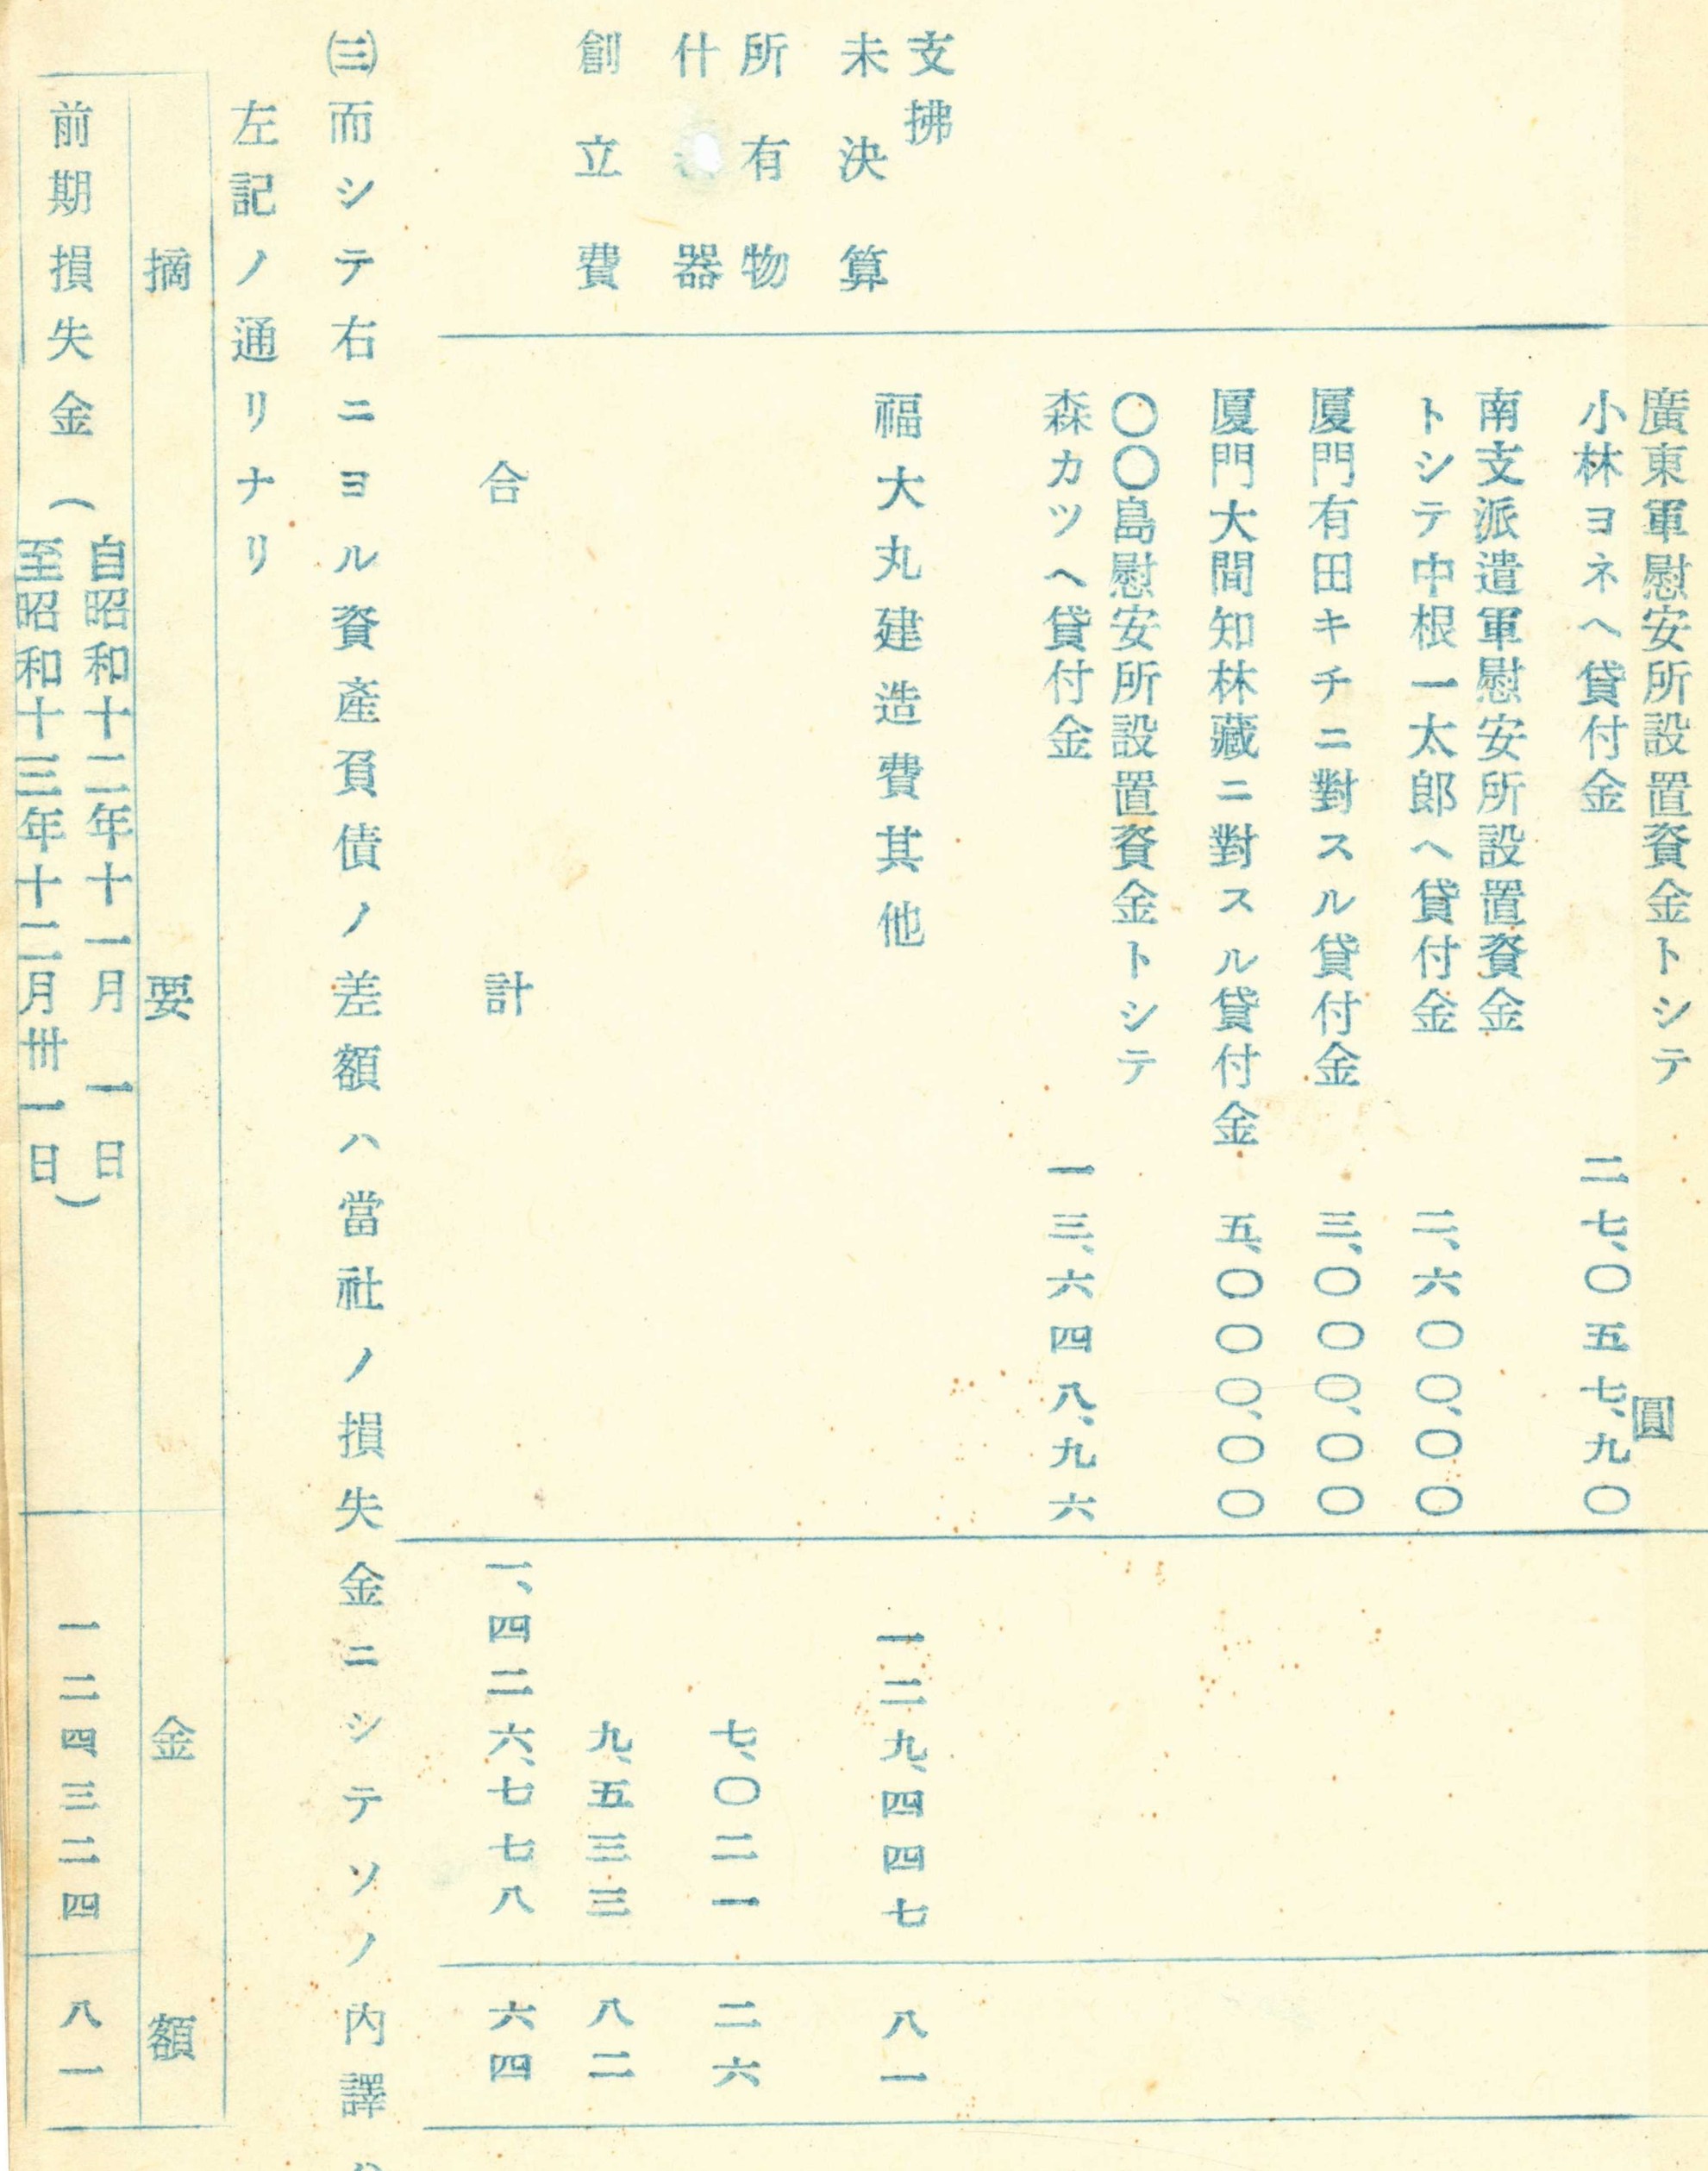 廣東軍慰安所設置資金トシテ 圓
小林ヨネヘ貸付金 二七、〇五七、九〇
南支派遣軍慰安所設置資金
トシテ中根一太郎ヘ貸付金 二、六〇〇、〇〇
厦門有田キチニ對スル貸付金 三、〇〇〇、〇〇
厦門大間知林藏ニ對スル貸付金 五、〇〇〇、〇〇
〇〇島慰安所設置資金トシテ
森カツヘ貸付金 一三、六四八、九六
支拂
未決算 福大丸建造費其他 一二九、四四七 八一
所有物
什器 七、〇二一 二六
創立費 九、五三三 八二
合計 一、四二六、七七八 六四
㈢而シテ右ニヨル資產負債ノ差額ハ當社ノ損失金ニシテソノ內譯ハ
左記ノ通リナリ
摘要 金額
前期損失金(自昭和十二年十一月一日
至昭和十三年十二月卅一日) 一二四、三二四 八一